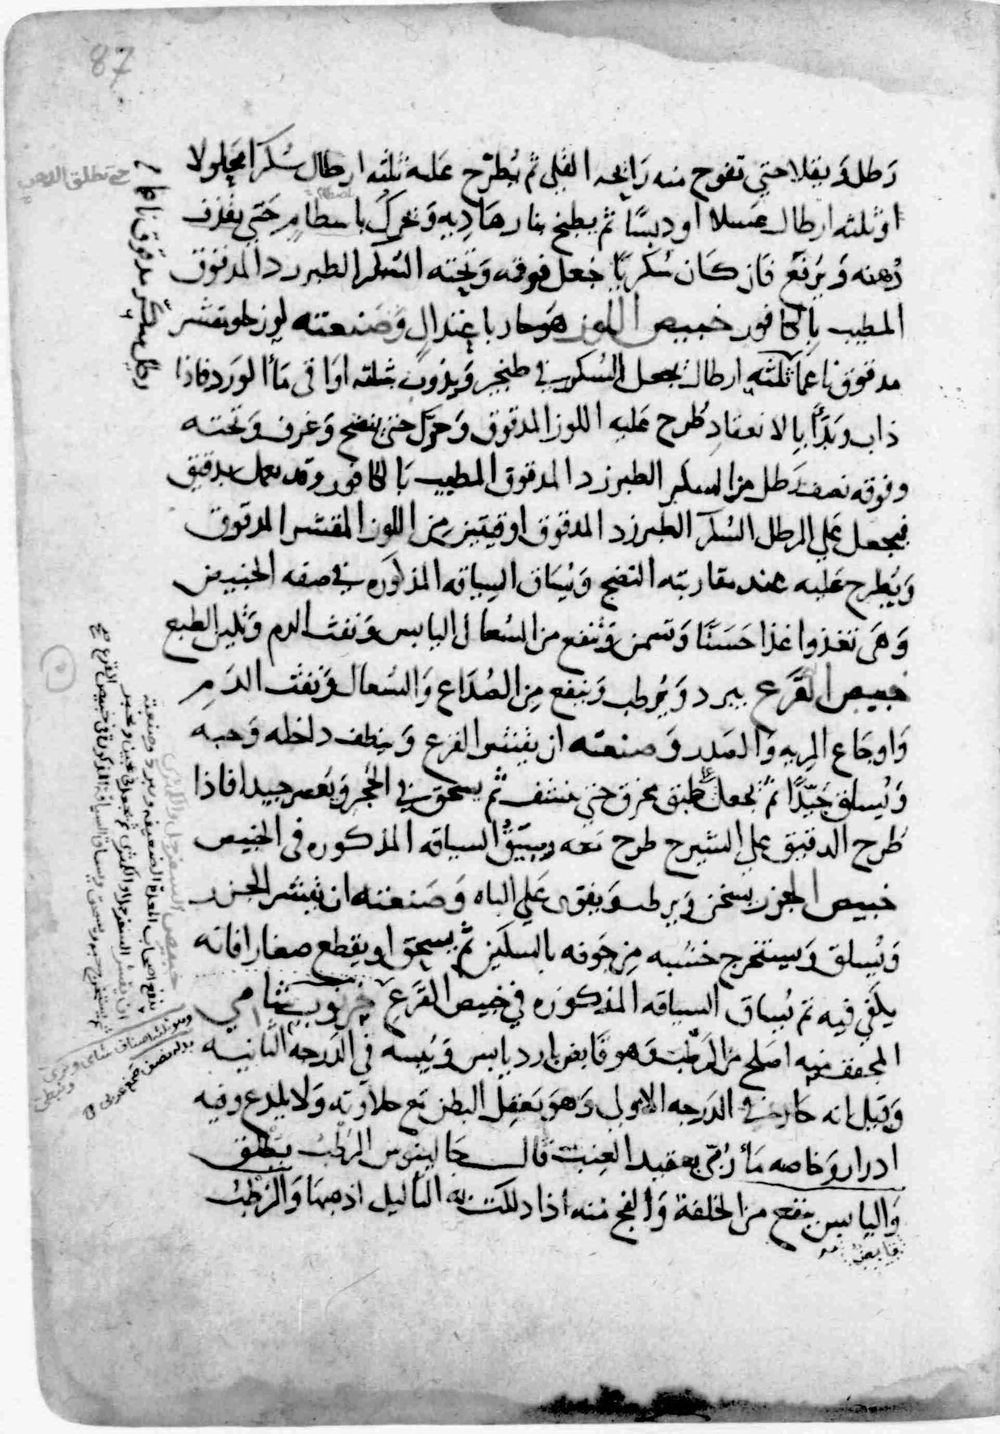 87
رطل ويقلا حتي تفوح منه رايحه القلي ثم يطرح عليه ثلثه ارطال سكرا محلولا
او ثلثه ارطال عسلا او دبسا ثم يطبخ بنار هاديه ويحرك باسطام حتي يقذف
دهنه ويرفع فان كان سكريا جعل فوقه وتحته السكر الطبرزد المدقوق
المطيب بالكافور خبيص اللوز هو حار باعتدال وصنعته لوز حلو مقشر
مدقوق ناعما ثلثه ارطال يجعل السكر في طنجير ويذوب بثلثه اواقي ماالورد فاذا
ذاب وبدأ بالانعقاد طرح عليه اللوز المدقوق وحرك حتي ينضج وغرف وتحته
وفوقه نصف رطل من السكر الطبرزد المدقوق المطيب بالكافور وقد يعمل بدقيق
فيجعل علي الرطل السكر الطبرزد المدقوق اوقيتين من اللوز المقشر المدقوق
ويطرح عليه عند مقاربته النضج ويساق السياقه المذكوره في صفه الخبيص
وهى تغذوا غذا حسنا وتسمن وتنفع من السعال اليابس ونفث الدم وتلين الطبع
خبيص القرع يبرد ويرطب وينفع من الصداع والسعال ونفث الدم
واوجاع الريه والصدر وصنعته ان يقشر القرع وينظف داخله وحبه
ويسلق جيدا ثم يجعل علي طبق مخرق حتي ينشف ثم يسحق في الحجر ويعصر جيدا فاذا
طرح الدقيق علي الشيرج طرح معه ويسق السياقه المذكوره في الخبيص
خبيص الجزر يسخن ويرطب ويقوى علي الباه وصنعته ان يقشر الجزر
ويسلق ويستخرج خشبه من جوفه بالسكين ثم يسحق او يقطع صغارا فانه
يلقي فيه ثم يساق السياقه المذكوره في خبيص القرع خرنوب شامي
المجفف منه اصلح من الرطب وهو قابض بارد يابس ويبسه في الدرجه الثانيه
وقيل انه حار في الدرجه الاولي وهو يعقل البطن مع حلاوته ولا يلذع وفيه
ادرار وخاصه ما ربي بعقيد العنب قال جالينوس الرطب يطلق
واليابس ينفع من الخلفة والفج منه اذا دلكت به الثاليل اذهبها والرطب
قابض